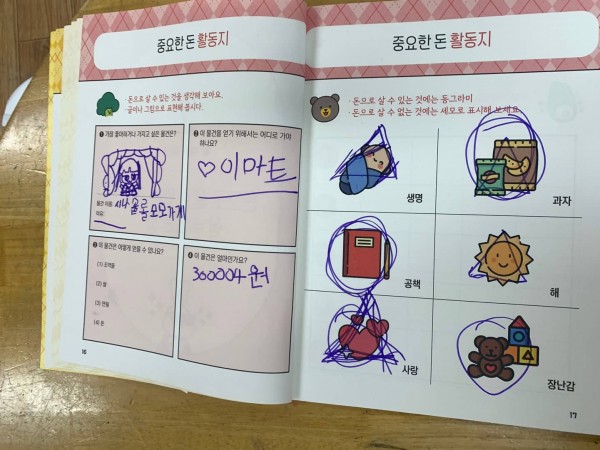 중요한 돈 활동지
· 돈으로 살 수 있는 것을 생각해 보아요.
· 글이나 그림으로 표현해 봅시다.
❶ 가장 좋아하거나 가지고 싶은 물건은?
물건 이름: 시나솔룰모모가게
이유:
❷ 이 물건을 얻기 위해서는 어디로 가야 하나요?
♡이마트
❸ 이 물건은 어떻게 얻을 수 있나요?
(1) 조개들
(2) 쌀
(3) 연필
(4) 돈
❹ 이 물건은 얼마인가요?
300004원
16
중요한 돈 활동지
· 돈으로 살 수 있는 것에는 동그라미
· 돈으로 살 수 없는 것에는 세모로 표시해 보세요.
생명
과자
공책
해
사랑
장난감
17